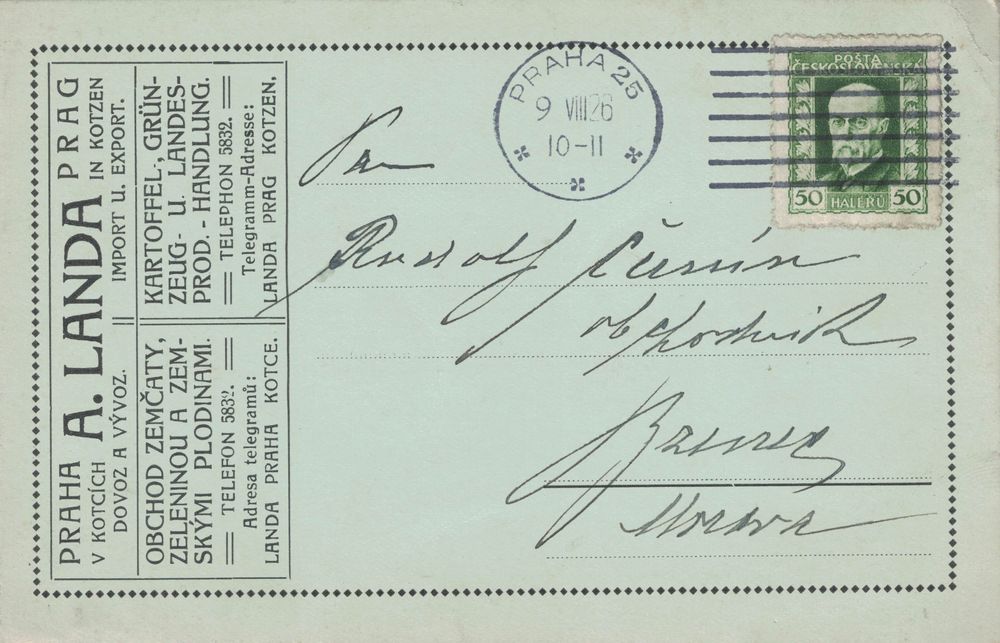 PRAHA A. LANDA PRAG
V KOTCÍCH IN KOTZEN
DOVOZ A VÝVOZ. IMPORT U. EXPORT.
OBCHOD ZEMČATY,
ZELENINOU A ZEM-
SKÝMI PLODINAMI.
TELEFON 5832.
Adresa telegramů:
LANDA PRAHA KOTCE.
KARTOFFEL-, GRÜN-
ZEUG- U. LANDES-
PROD.-HANDLUNG.
TELEPHON 5832.
Telegramm-Adresse:
LANDA PRAG KOTZEN.
PRAHA 25
9 VIII 26
10-11
POŠTA
ČESKOSLOVENSKÁ
50 HALÉŘŮ 50
Pan
Rudolf
obchodník
Morava